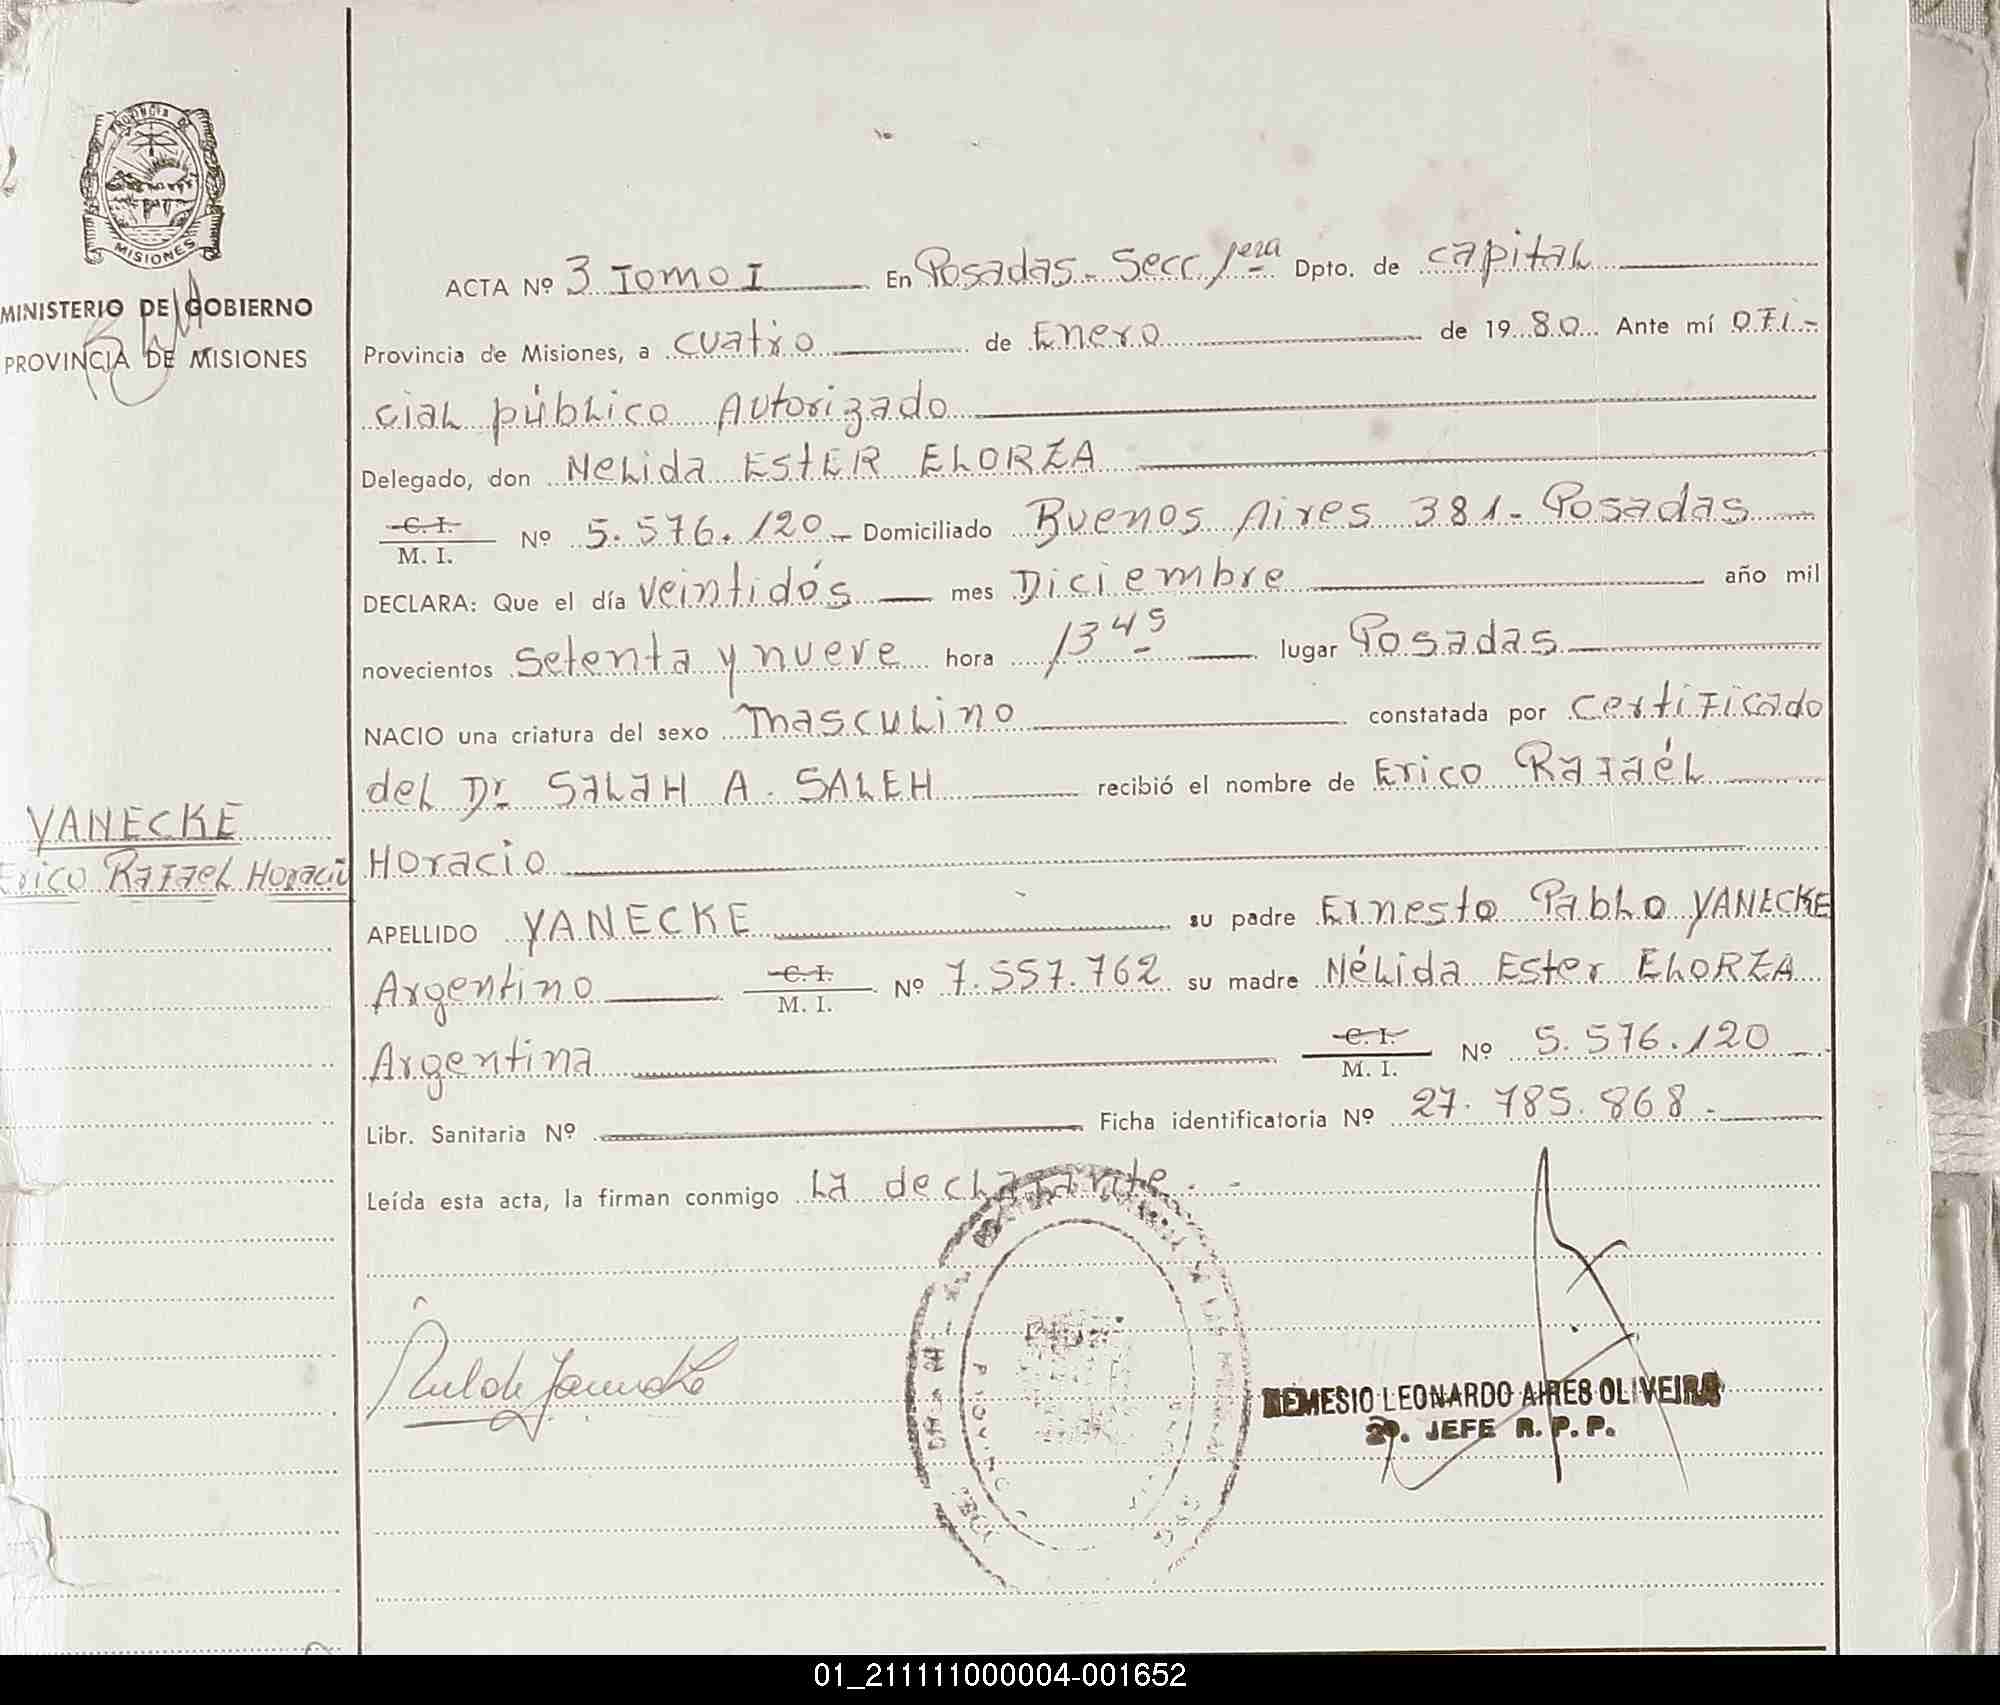 PROVINCIA DE
MISIONES
MINISTERIO DE GOBIERNO
PROVINCIA DE MISIONES
ACTA Nº 3 Tomo I En Posadas - Secc 1era Dpto. de Capital
Provincia de Misiones, a cuatro de Enero de 1980 Ante mí Ofi-
cial público Autorizado
Delegado, don Nelida ESTER ELORZA
C. I.
M. I. Nº 5.576.120 - Domiciliado Buenos Aires 381 - Posadas
DECLARA: Que el día veintidós mes Diciembre año mil
novecientos setenta y nueve hora 13 45 lugar Posadas
NACIO una criatura del sexo masculino constatada por certificado
del Dr SALAH A. SALEH recibió el nombre de Erico Rafaél
YANECKE
Erico Rafael Horacio
Horacio
APELLIDO YANECKE su padre Ernesto Pablo YANECKE
Argentino C. I.
M. I. Nº 7.557.762 su madre Nélida Ester ELORZA
Argentina C. I.
M. I. Nº 5.576.120
Libr. Sanitaria Nº Ficha identificatoria Nº 27.785.868.
Leída esta acta, la firman conmigo La declarante.
NEMESIO LEONARDO AIRES OLIVEIRA
2º. JEFE R. P. P.
01_211111000004-001652